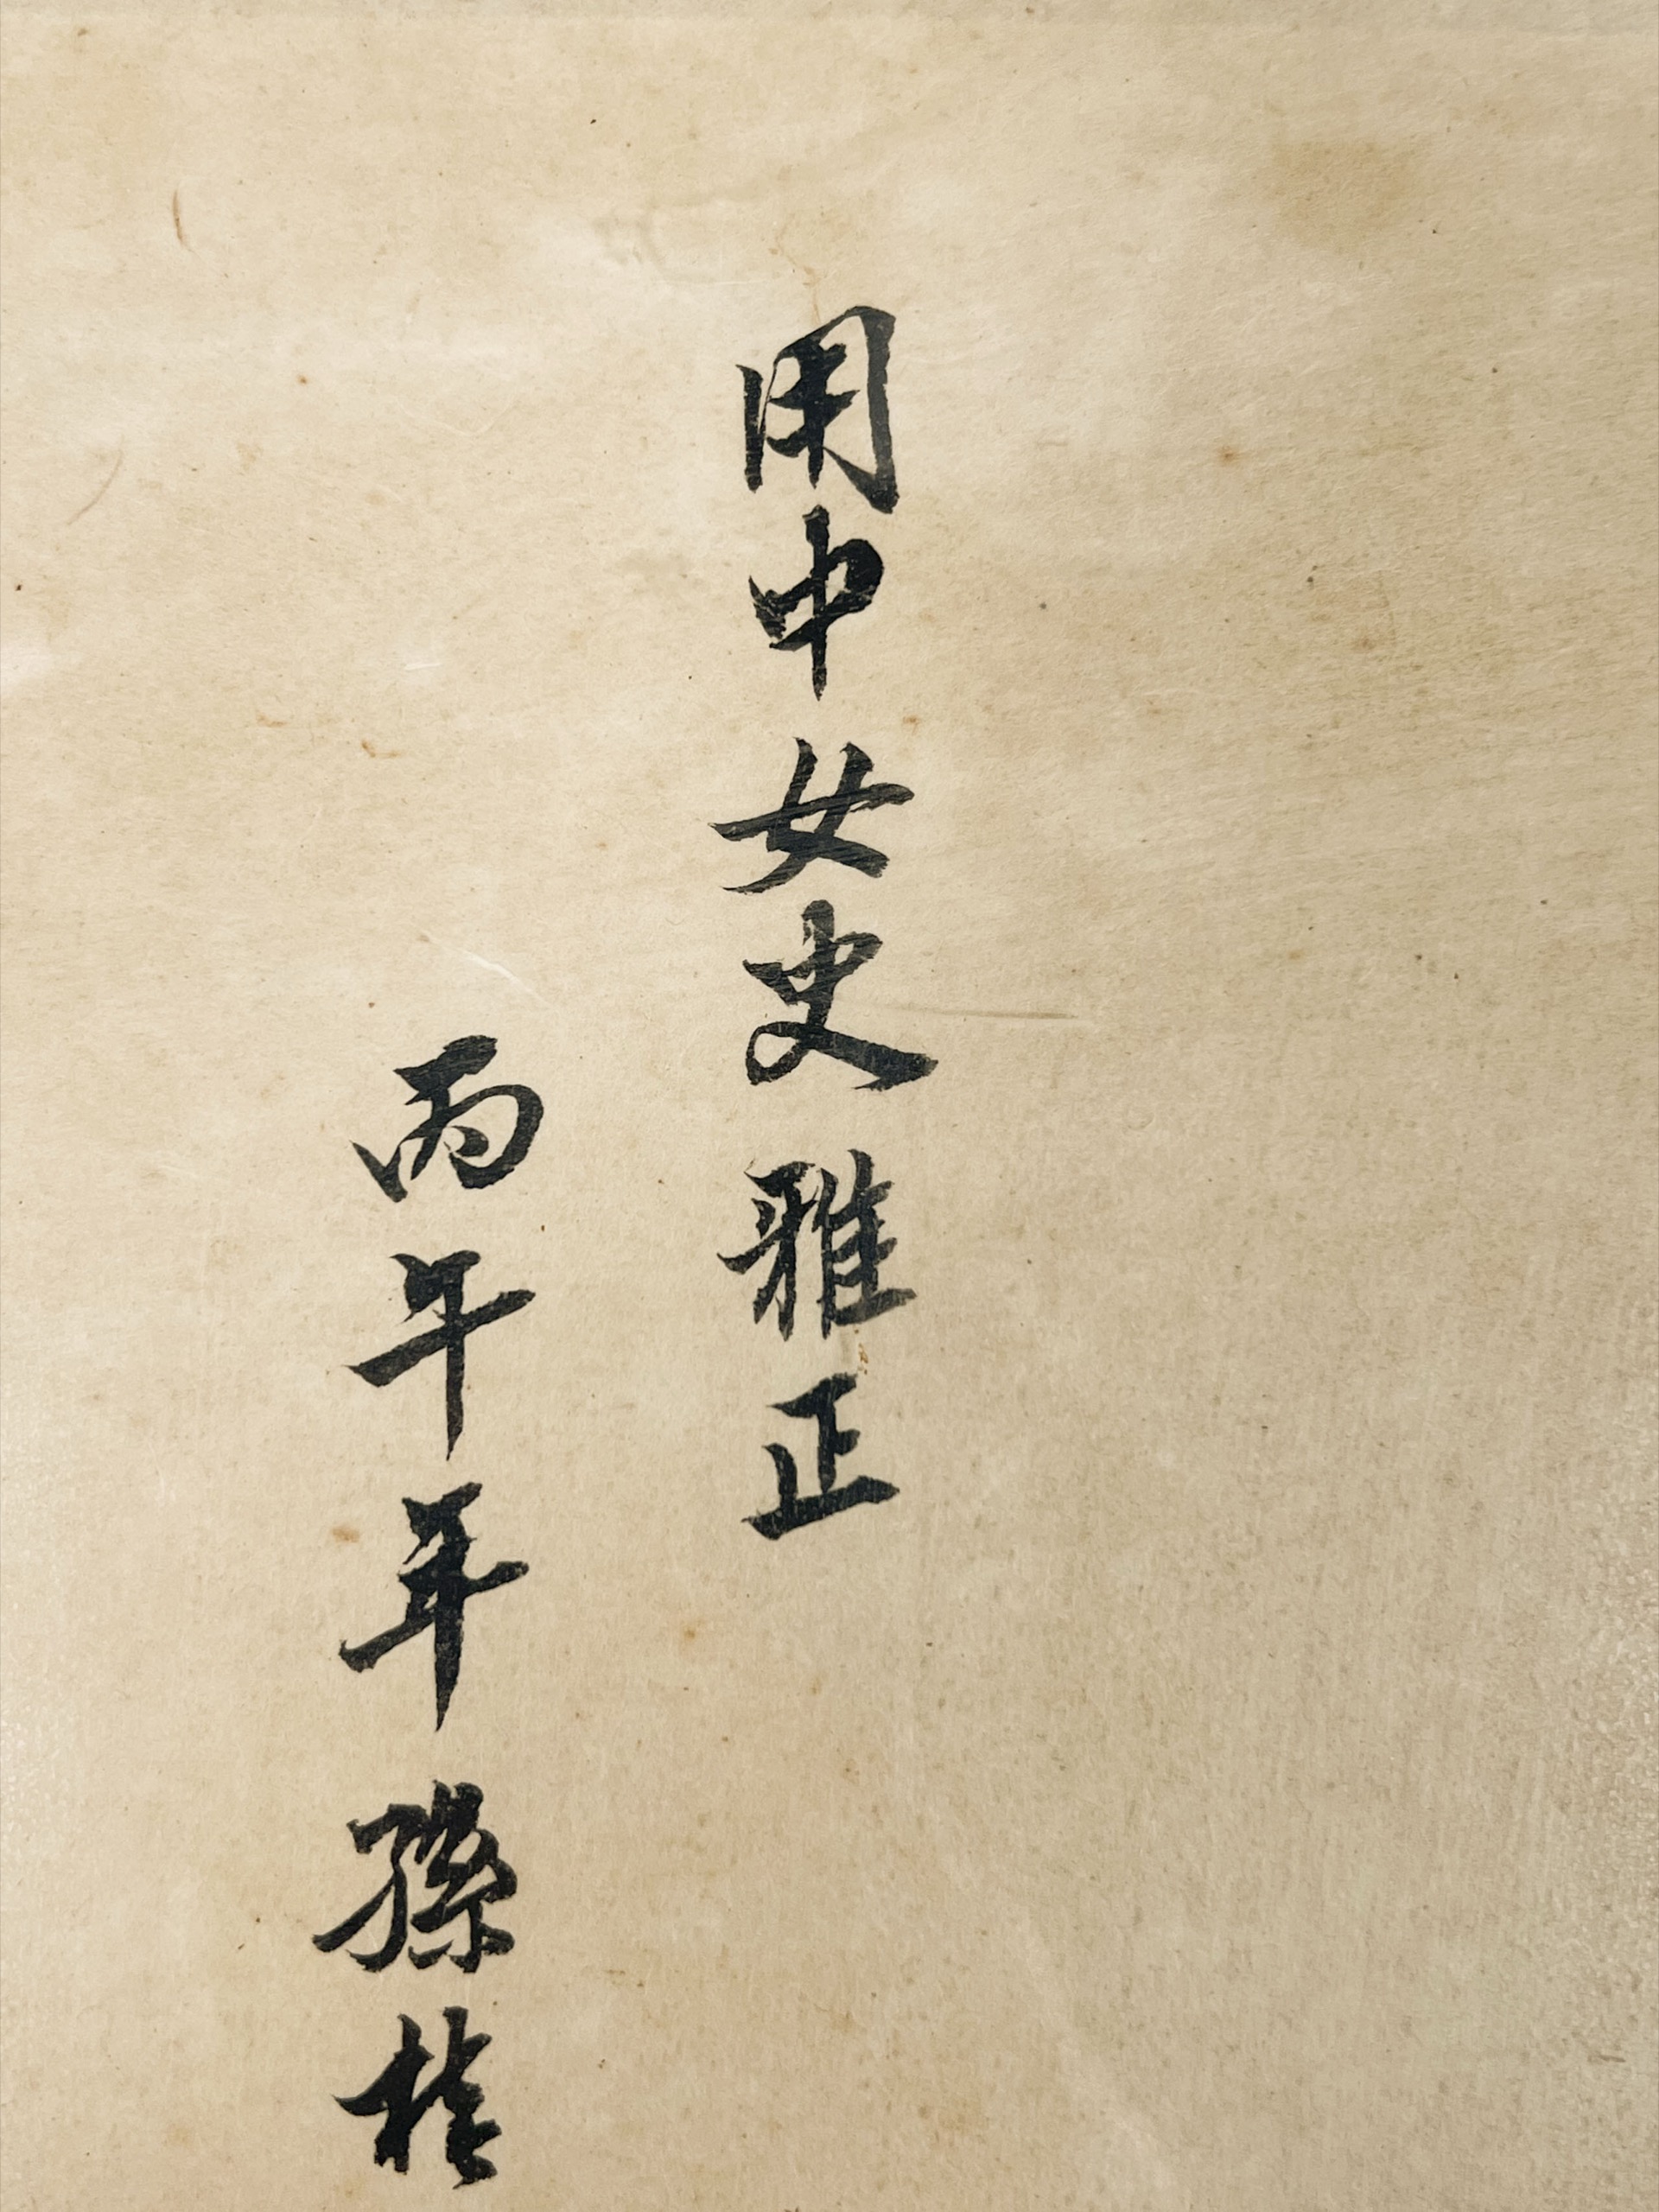 用中女史雅正
丙午年孫